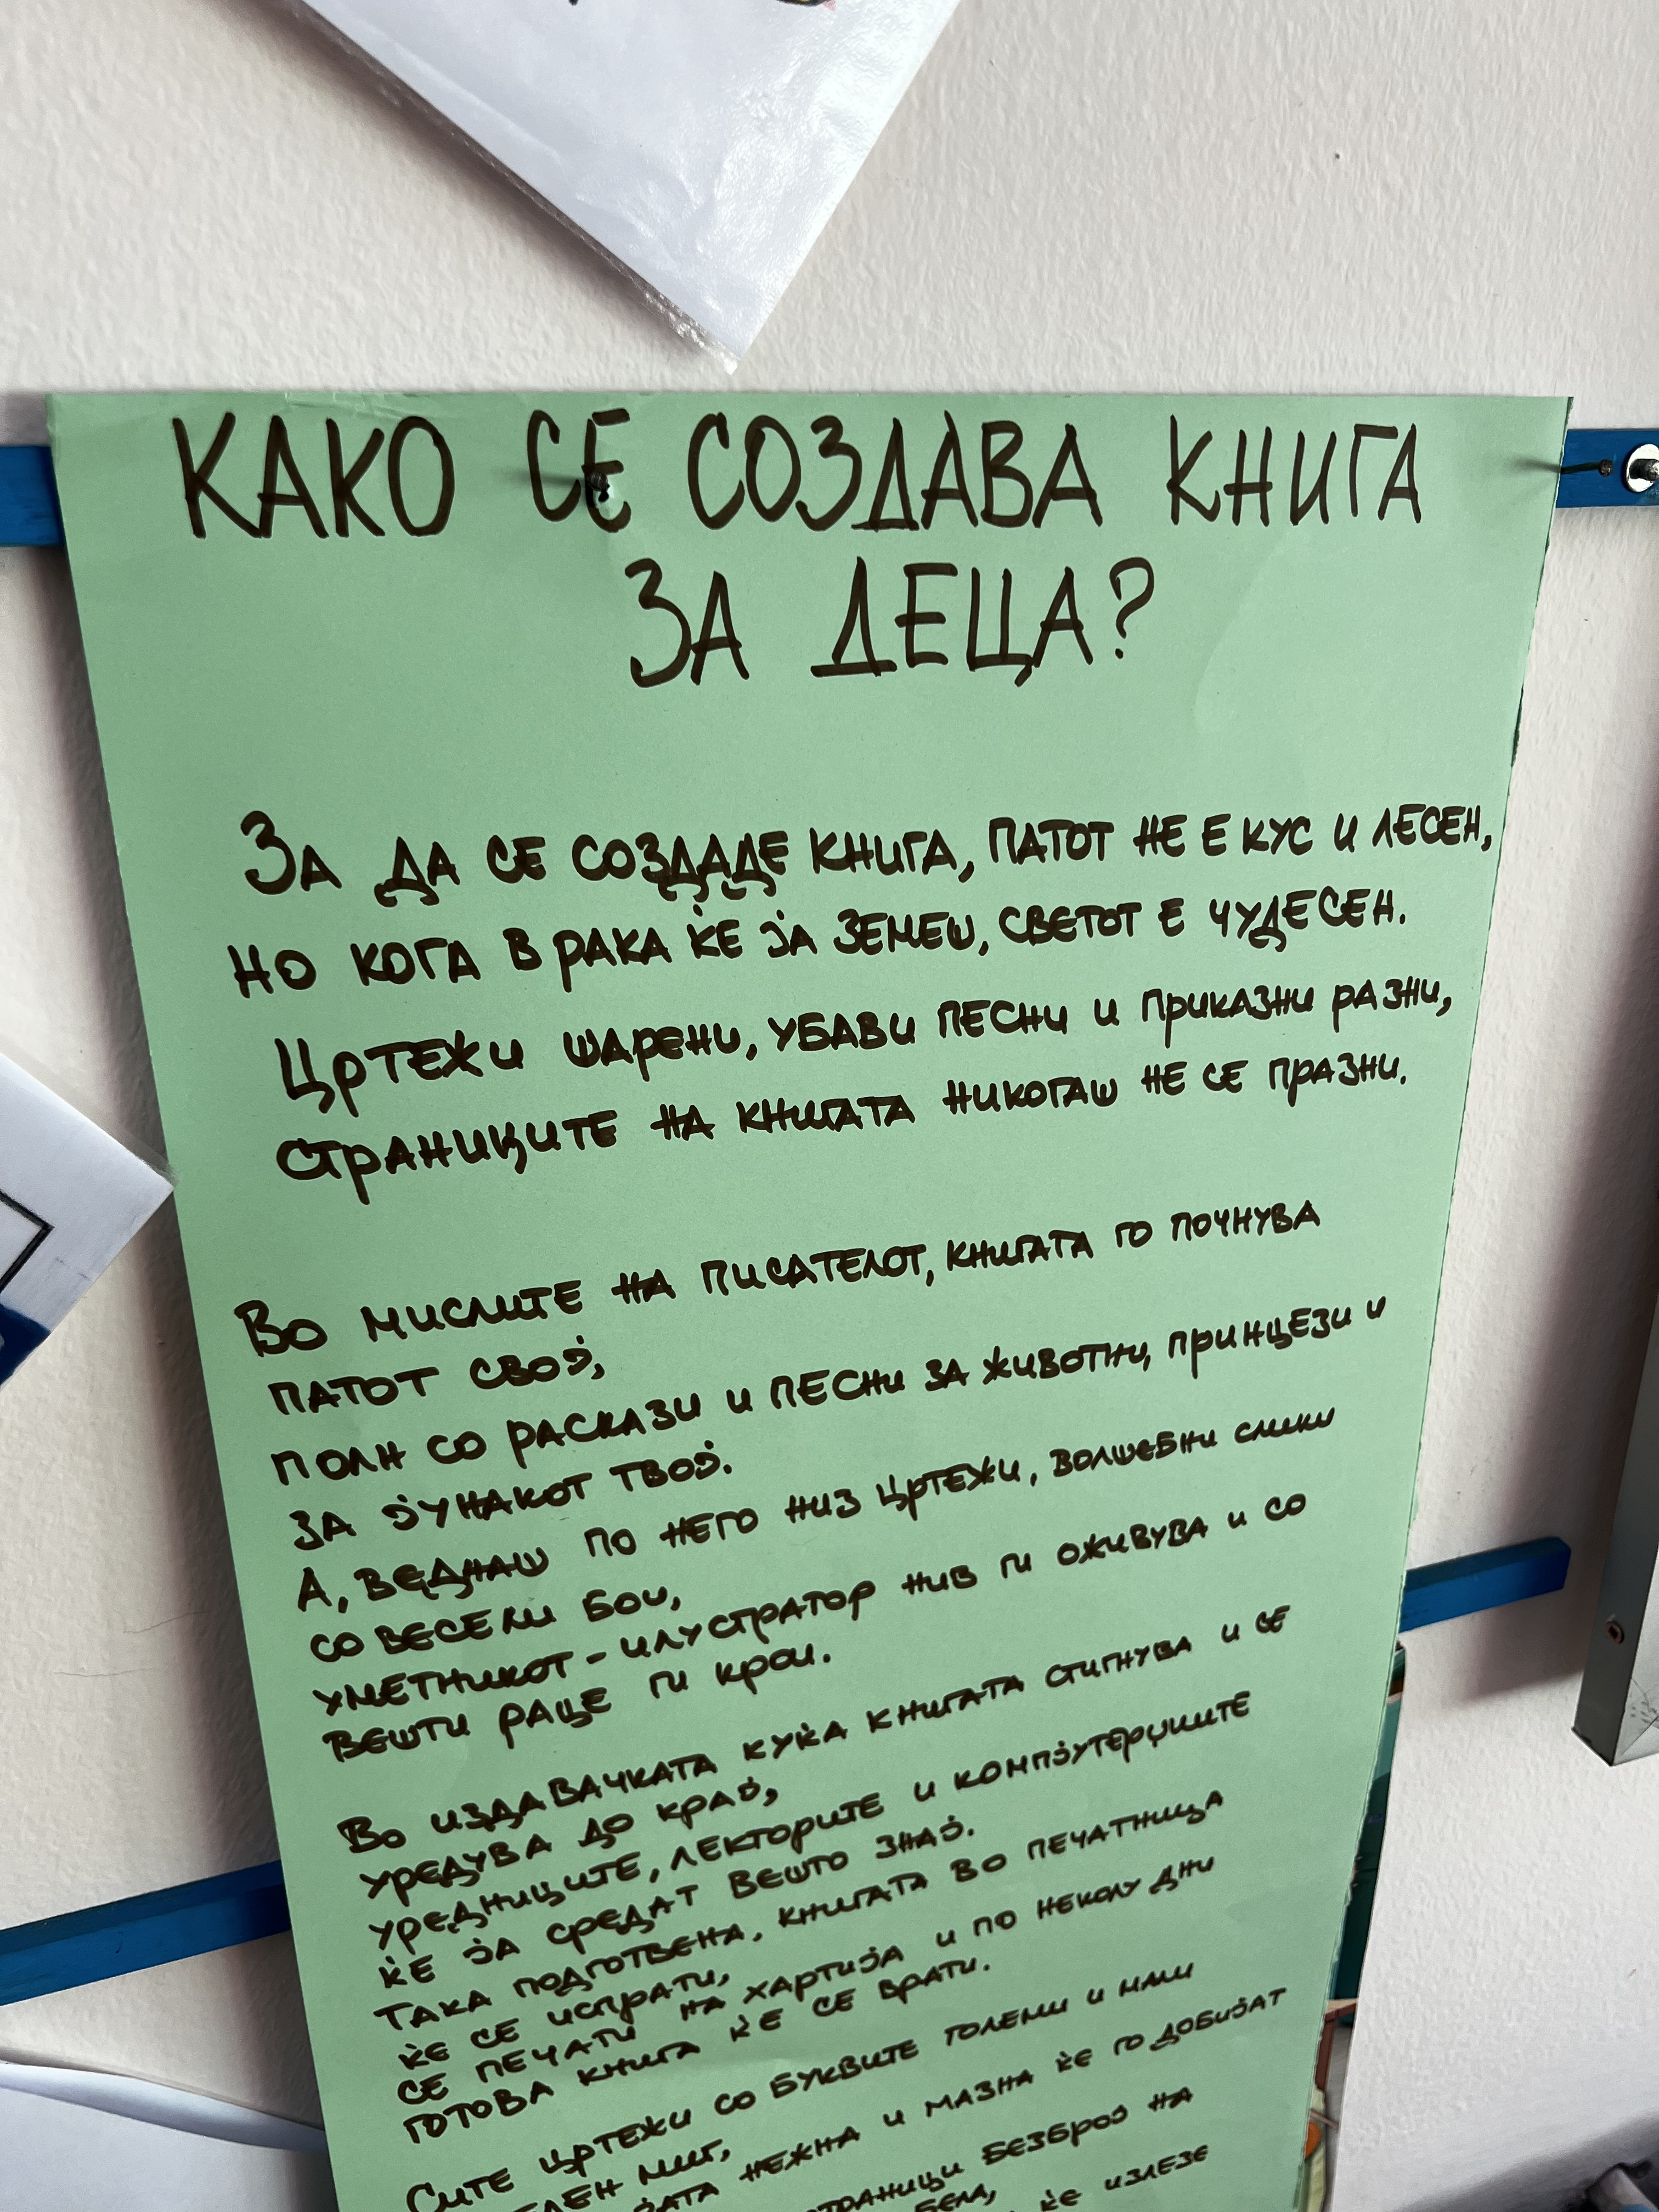 КАКО СЕ СОЗДАВА КНИГА
ЗА ДЕЦА?
За да се создаде книга, патот не е кус и лесен,
но кога в рака ќе ја земеш, светот е чудесен.
Цртежи шарени, убави песни и приказни разни,
страниците на книгата никогаш не се празни.
Во мислите на писателот, книгата го почнува
патот свој,
полн со раскази и песни за животни, принцези и
за јунакот твој.
А, веднаш по него низ цртежи, волшебни слики
со весели бои,
уметникот - илустратор нив ги оживува и со
вешти раце ги крои.
Во издавачката куќа книгата стигнува и се
уредува до крај,
уредниците, лекторите и компјутерџиите
ќе ја средат вешто знај.
Така подготвена, книгата во печатница
ќе се испрати,
се печати на хартија и по неколу дни
готова книга ќе се врати.
Сите цртежи со буквите големи и мали
миг,
нежна и мазна ќе го добијат
страници безброј на
бела,
ќе излезе